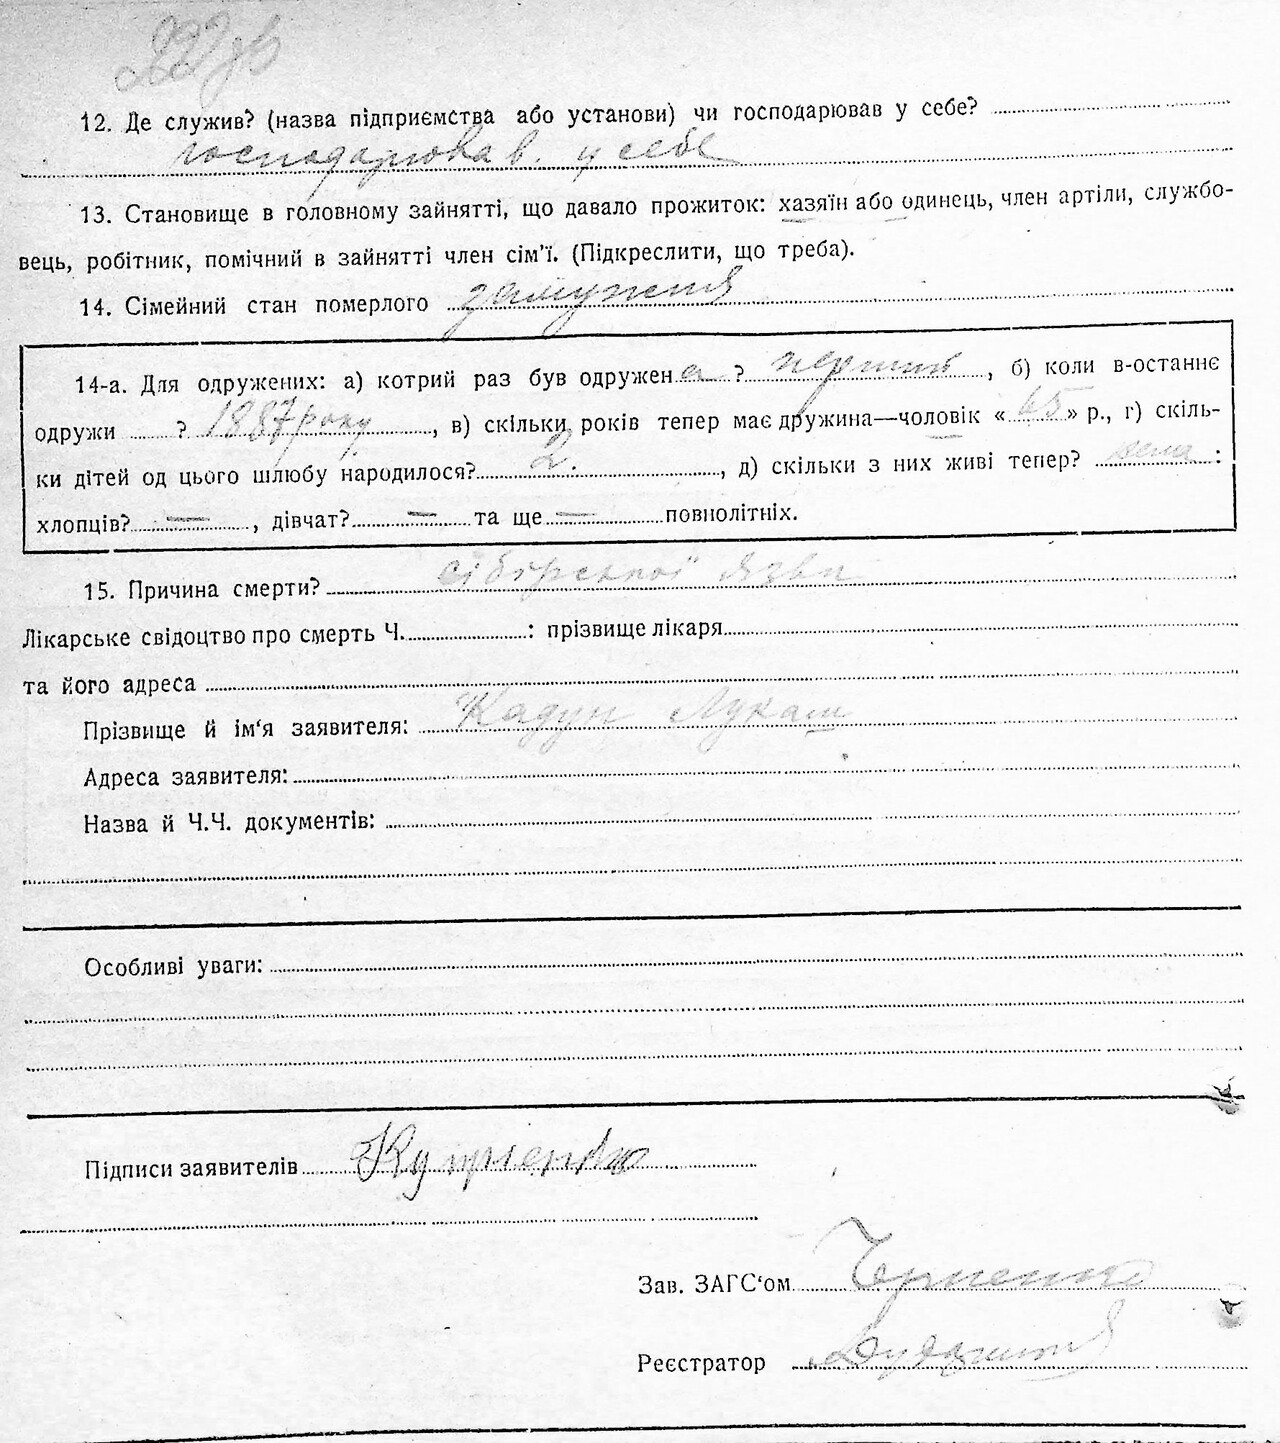 222зв
12. Де служив? (назва підприємства або установи) чи господарював у себе?
господарював. у себе
13. Становище в головному зайнятті, що давало прожиток: хазяїн або одинець, член артіли, службо-
вець, робітник, помічний в зайнятті член сім'ї. (Підкреслити, що треба).
14. Сімейний стан померлого замужня
14-а. Для одружених: а) котрий раз був одружен а ? перший, б) коли в-останнє
одружи ? 1887 року, в) скільки років тепер має дружина—чоловік « 65 » р., г) скіль-
ки дітей од цього шлюбу народилося? 2., д) скільки з них живі тепер? нема :
хлопців? —, дівчат? — та ще — повнолітніх.
15. Причина смерти? сібірської язви
Лікарське свідоцтво про смерть Ч. : прізвище лікаря
та його адреса
Прізвище й ім'я заявителя: Кадун Лукаш
Адреса заявителя:
Назва й Ч.Ч. документів:
Особливі уваги:
Підписи заявителів
Зав. ЗАГС'ом
Реєстратор